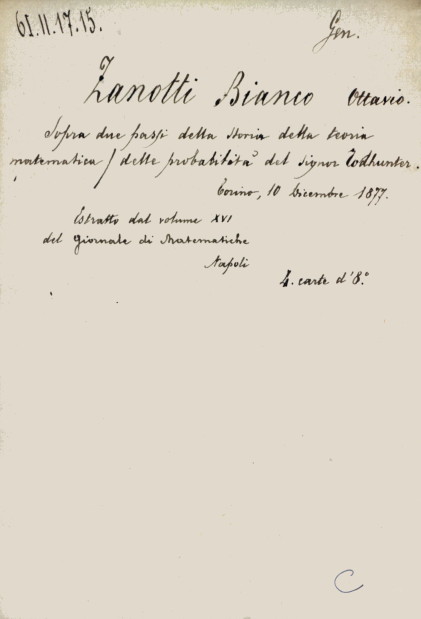 61.II.17.15.
Gen.
Zanotti Bianco Ottavio.
Sopra due passi della Storia della teoria
matematica / delle probabilità del signor Todhunter.
Torino, 10 Dicembre 1877.
Estratto dal volume XVI
del Giornale di Matematiche
Napoli
4. carte d'8.°
C